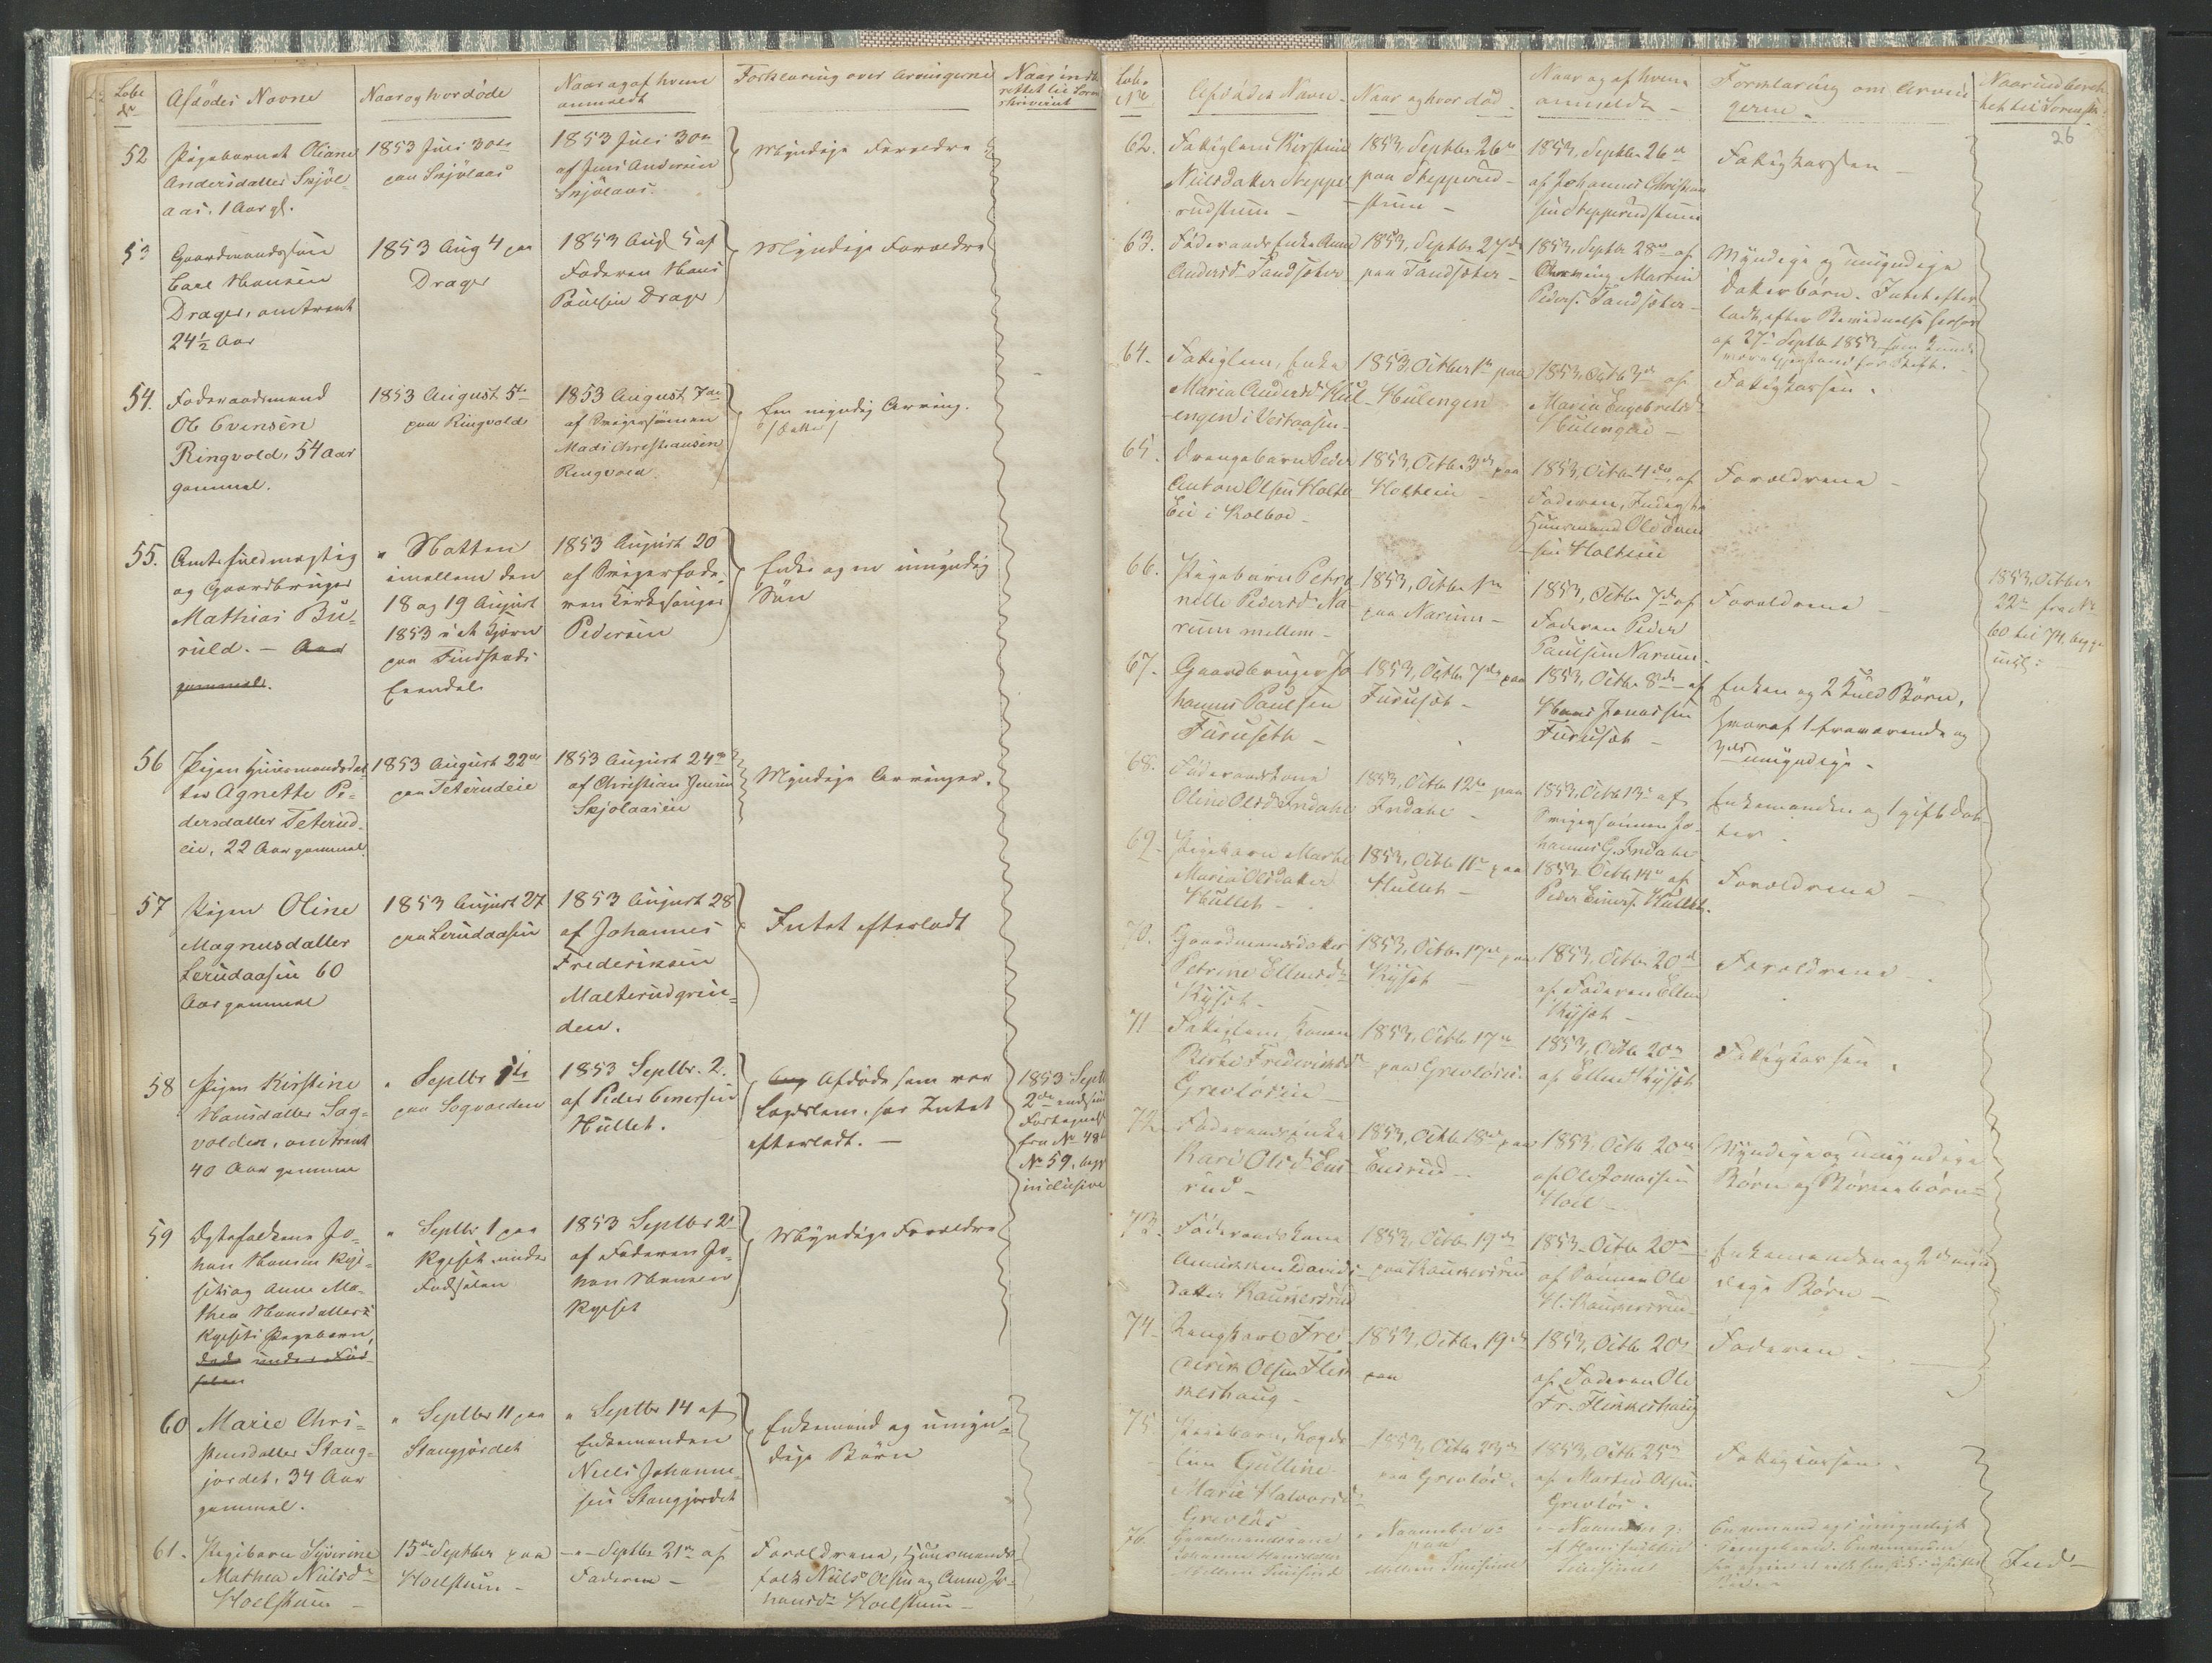 Løbe
№
Afdødes Navne
Naar og hvor døde
Naar og af hvem
anmeldt
Forklaring over Arvingerne
Naar indbe-
rettet til Soren-
skriveren
52
Pigebarnet Oliane
Andersdatter Snjöl-
aas. 1 Aar gl.
1853 Juli 30te
paa Snjölaas
1853 Juli 30te
af Jens Andersen
Snjölaas.
Myndige Foreldre
53
Gaardmandssøn
Carl Hansen
Drager, omtrent
24½ Aar
1853 Aug 4 paa
Drager
1853 Aug 5 af
Faderen Hans
Poulsen Drager
Myndige Foreldre
54.
Føderaadsmand
Ole Evensen
Ringvold, 54 Aar
gammel.
1853 August 5te
paa Ringvold
1853 August 7de
af Svigersønnen
Mads Christiansen
Ringvold.
En myndig Arving.
/: Datter :/
55.
Amtsfuldmægtig
og Gaardbruger
Mathias Bu-
ruld. — Aar
gammel.
" Natten
imellem den
18 og 19 August
1853 i et Tjern
paa Findstads
Eiendele
1853 August 20
af Svigerfade-
ren Kirkesanger
Pedersen
Enke og en umyndig
Søn
56
Pigen Huusmandsdat-
ter Agnethe Pe-
dersdatter Teterud-
eie, 22 Aar gammel.
1853 August 22de
paa Teterudeie
1853 August 24de
af Christian Jensen
Skjolaaseie
Myndige Arvinger.
57
Pigen Oline
Magnusdatter
Lerudaasen 60
Aar gammel
1853 August 27
paa Lerudaasen
1853 August 28
af Johannes
Frederiksen
Malterudgrin-
den.
Intet efterladt
58
Pigen Kirstine
Hansdatter Sag-
volden, omtrent
40 Aar gammel
" Septbr 1ste
paa Sagvolden
1853 Septbr. 2.
af Peder Einersen
Hullet.
Afdøde som var
Lægdslem, har Intet
efterladt. —
1853 Septb
2de indsendt
Fortegnelse
fra № 48 til
№ 59, begge
inclusive
59
Ægtefolkene Jo-
han Hansen Kyse-
set og Anne Ma-
thea Hansdatter
Kysets Pigebarn,
døde under Fød-
selen
" Septbr 1 paa
Kyset under
Fødselen
1853 Septbr 2
af Faderen Jo-
han Hansen
Kyset
Myndige Foreldre
60
Marie Chri-
stensdatter Stang-
jordet, 34 Aar
gammel.
" Septbr 11 paa
Stangjordet
" Septbr 14 af
Enkemanden
Niels Johanne-
sen Stangjordet
Enkemand og umyn-
dige Børn
61.
Pigebarn Syverine
Mathea Nielsdr
Hoelstuen —
15de Septbr paa
Hoelstuen —
—"— Septbr 21de af
Faderen —
Foreldrene, Huusmands-
folk Niels Olsen og Anne Jo-
hansdr Hoelstuen —
Løbe
№
Afdødes Navn.
Naar og hvor død.
Naar og af hvem
anmeldt —
Forklaring om Arvin-
gerne.
Naar indberet-
tet til Sorenskr.
26
62.
Fattiglem Kirstine
Nielsdatter Steppe-
rudstuen —
1853, Septbr 26de
paa Stepperud-
stuen —
1853, Septbr 26de
af Johannes Christian-
sen Stepperudstuen
Fattigkassen —
63.
Føderaads Enke Anne
Andersdr Sandsæter
1853, Septbr 27de
paa Sandsæter —
1853, Septbr 28de af
Martin
Peders. Sandsæter —
Myndige og umyndige
Datterbørn. Intet efter-
ladt, efter
af 27de Septbr 1853
64.
Fattiglem, Enke
Maria Andersdr Hul-
engen i Vestaasen —
1853, October 1ste paa
Hulengen
1853, Octbr 3de af
Maria Engebretsdr
Hulengen —
Fattigkassen.
65.
Drengebarn Peder
Anton Olsen Holte
Eie i Kolboe —
1853, Octbr 3de paa
Holteie —
1853, Octbr 4de, af
Faderen, Inderst og
Huusmand Ole Even-
sen Holteie
Foreldrene —
66.
Pigebarn Petro-
nelle Pedersdr Na-
rum mellem —
1853, Octbr
paa Narum —
1853, Octbr 7de af
Faderen Peder
Paulsen Narum.
Foreldrene —
1853, October
22de fra №
60 til 74, begge
incl:
67.
Gaardbruger Jo-
hannes Paulsen
Furuseth —
1853, Octbr 7de paa
Furuset —
1853, Octbr 8de af
Hans Jonassen
Furuset —
Enken og 2 Kuld Børn,
hvoraf 1 fraværende og
umyndige.
68.
Føderaadskone
Oline Olsdr Indahl
1853, Octbr 12te paa
Indahl —
1853, Octbr 13de af
Svigersønnen Jo-
hannes G. Indahl
Enkemanden og 1 gift Dat-
ter —
69.
Pigebarn Marthe
Maria Olsdatter
Hullet —
1853, Octbr 11te paa
Hullet —
1853 Octbr 14de af
Peder Einers. Hullet.
Foreldrene —
70.
Gaardmandsdatter
Petrine Ellensdr
Kyset —
1853, Octbr 17de paa
Kyset —
1853, Octbr 20de
af Faderen Ellen
Kyset —
Foreldrene —
71
Fattiglem Konen
Berthe Frederiksdr
Grevløsen —
1853, Octbr 17de
paa Grevløsen.
1853, Octbr 20de
af Ellend Kyset
Fattigkassen.
72.
Føderaadsenke
Kari Olsdr Ens-
rud —
1853, Octbr 18de paa
Ensrud —
1853, Octbr 20de
af Ole Jonassen
Hoel —
Myndige og umyndige
Børn og Børnebørn —
73.
Føderaadskone
Annikken Davids-
datter Kaukersrud
1853, Octbr 19de
paa Kaukersrud
1853, Octbr 20de
af Sønnen Ole
H. Kaukersrud
Enkemanden og 2 umyn-
dige Børn —
74.
Ungkarl Fre-
derik Olsen Flik-
keshaug —
1853, Octbr 19de
paa
1853, Octbr 20de
af Faderen Ole
Fr. Flikkeshaug
Faderen —
75.
Pigebarn, Lægds-
lem Gulline
Marie Halvorsdr
Grevløs
1853, Octbr 23de
paa Grevløs.
1853, Octbr 25de
af Martin Olsen
Grevløs.
Fattigkassen.
76.
Gaardmandskone
Johanne Hansdatter
Mellem
" November
paa
Mellem
" November 9.
af
Enkemand og 1 umyndigt
Ind-